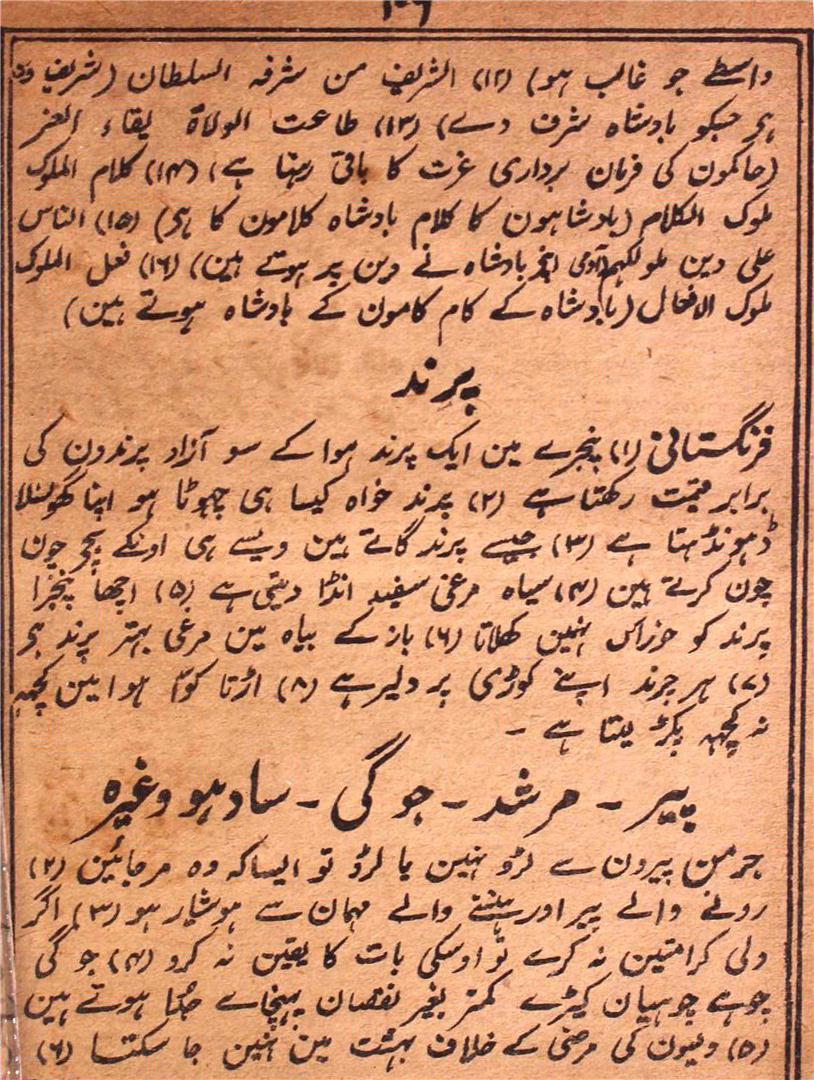 واسطے جو غالب ہو) (۱۲) الشریف من شرفہ السلطان (شریف وہ
ہی جسکو بادشاہ شرف دے) (۱۳) طاعت الولاۃ بقاء العز
(حاکمون کی فرمان برداری عزت کا باقی رہنا ہے) (۱۴) کلام الملوک
ملوک الکلام (بادشاہون کا کلام بادشاہ کلامون کا ہی) (۱۵) الناس
علی دین ملوکہم (آدمی اپنے بادشاہ کے دین پر ہوتے ہین) (۱۶) فعل الملوک
ملوک الافعال (بادشاہ کے کام کامون کے بادشاہ ہوتے ہین)
پرند
فرنگستانی (۱) پنجرے مین ایک پرند ہوا کے سو آزاد پرندون کی
برابر قیمت رکھتا ہے (۲) پرند خواہ کیسا ہی چھوٹا ہو اپنا گھونسلا
ڈھونڈھتا ہے (۳) جیسے پرند گاتے ہین ویسے ہی اونکے بچے چون
چون کرتے ہین (۴) سیاہ مرغی سفید انڈا دیتی ہے (۵) اچھا پنجرا
پرند کو خوراک نہین کھلاتا (۶) باز کے بیاہ مین مرغی بہتر پرند ہی
(۷) ہر پرند اپنے کوڑی پر دلیر ہے (۸) اڑتا کوّا ہوا مین کچھہ
نہ کچھہ پکڑ لیتا ہے ۔
پیر ۔ مرشد ۔ جوگی ۔ سادہو وغیرہ
جرمن پیرون سے لڑو نہین یا لڑو تو ایسا کہ وہ مر جائین (۲)
رونے والے پیر اور ہنسنے والے مہمان سے ہوشیار ہو (۳) اگر
ولی کرامتین نہ کرے تو اوسکی بات کا یقین نہ کرو (۴) جوگی
چوہے چوہیان کیڑے کمتر بغیر نقصان پہنچاے جدا ہوتے ہین
(۵) ولیون کی مرضی کے خلاف بہشت مین نہین جا سکتا (۶)